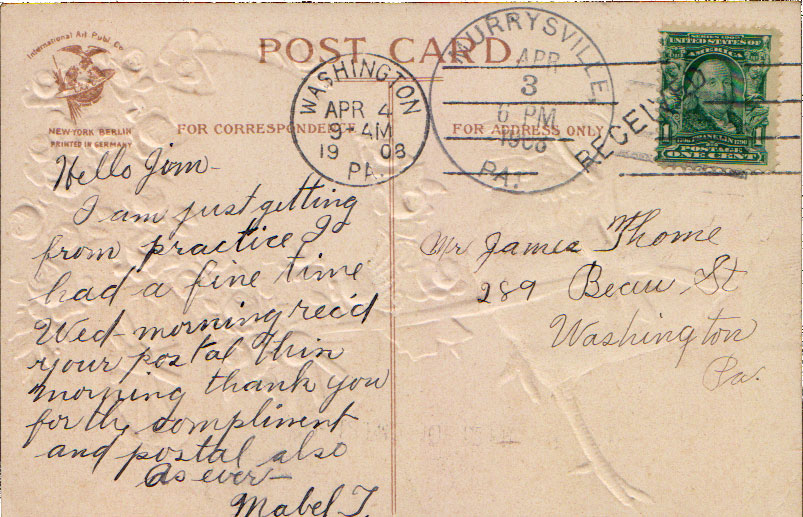 POST CARD
International Art Publ. Co.
NEW-YORK BERLIN
PRINTED IN GERMANY
FOR CORRESPONDENCE
FOR ADDRESS ONLY
WASHINGTON
APR 4
9 - AM
1908
PA.
MURRYSVILLE,
APR
3
6 PM
1908
PA.
RECEIVED
SERIES 1902
UNITED STATES OF
AMERICA
POSTAGE
1 ONE CENT 1
Hello Jim-
I am just getting
from practice I
had a fine time
Wed- morning rec'd
your postal this
morning thank you
for the compliment
and postal also
As ever-
Mabel T.
Mr James Thome
289 Beau St
Washington
Pa.